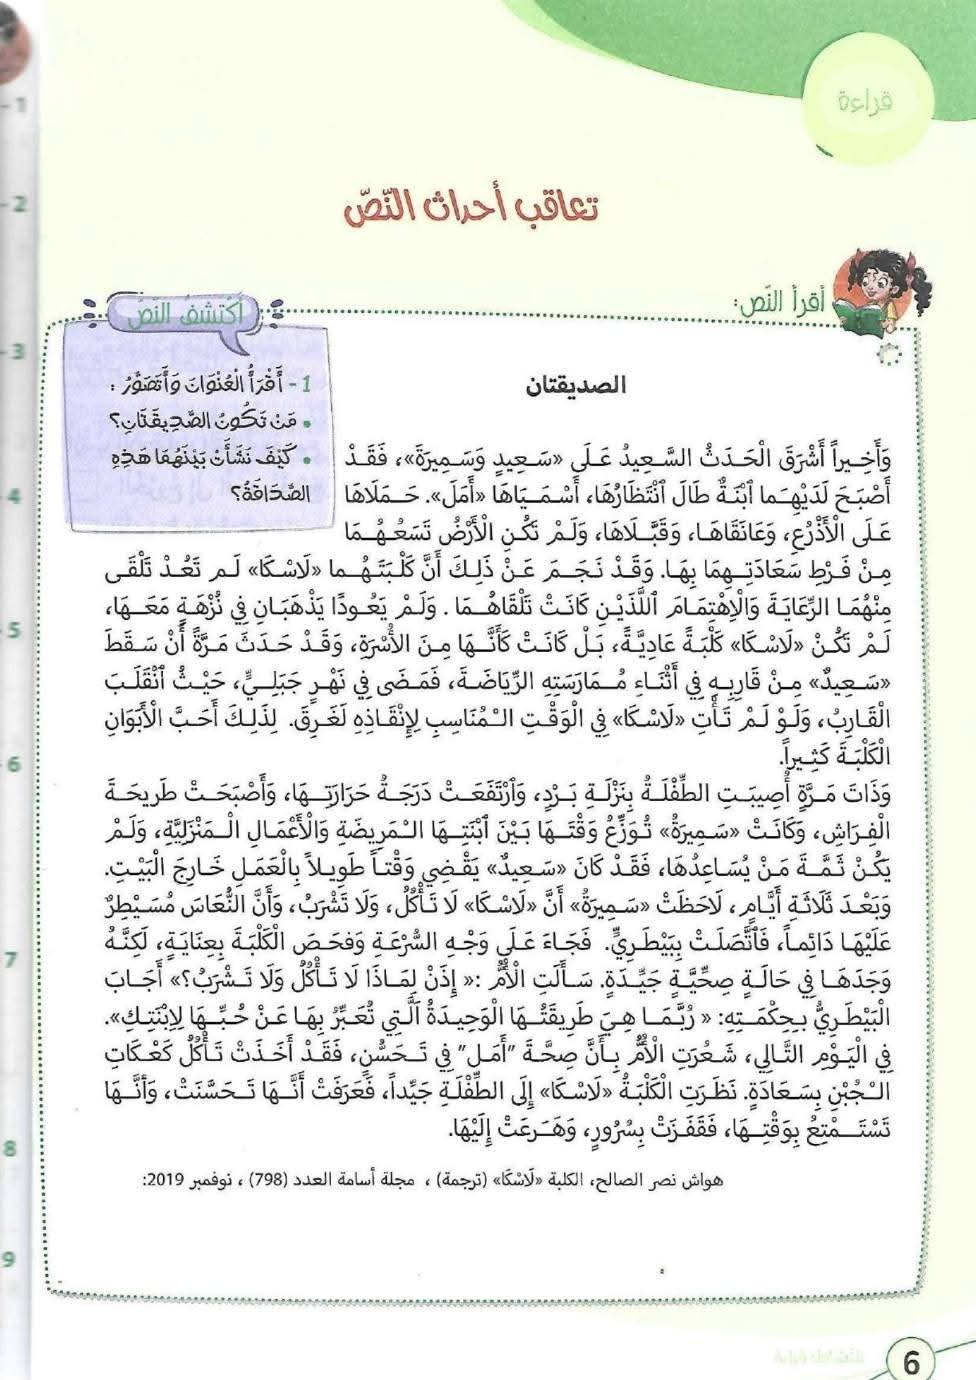 قراءة
تعاقب أحداث النّصّ
أقرأ النّص:
أكتشف النّص
1- أَقْرَأُ الْعُنْوَانَ وَأَتَصَوَّرُ :
• مَنْ تَكُونُ الصَّدِيقَتَانِ؟
• كَيْفَ نَشَأَتْ بَيْنَهُمَا هَذِهِ
الصَّدَاقَةُ؟
الصديقتان
وَأَخِيراً أَشْرَقَ الْحَدَثُ السَّعِيدُ عَلَى «سَعِيدٍ وَسَمِيرَةَ»، فَقَدْ
أَصْبَحَ لَدَيْهِمَا ٱبْنَةٌ طَالَ ٱنْتِظَارُهَا، أَسْمَيَاهَا «أَمَلَ». حَمَلَاهَا
عَلَى الْأَذْرُعِ، وَعَانَقَاهَا، وَقَبَّلَاهَا، وَلَمْ تَكُنِ الْأَرْضُ تَسَعُهُمَا
مِنْ فَرْطِ سَعَادَتِهِمَا بِهَا. وَقَدْ نَجَمَ عَنْ ذَلِكَ أَنَّ كَلْبَتَهُما «لَاسْكَا» لَم تَعُدْ تَلْقَى
مِنْهُمَا الرِّعَايَةَ وَالِاهْتِمَامَ ٱللَّذَيْنِ كَانَتْ تَلْقَاهُمَا . وَلَمْ يَعُودًا يَذْهَبَانِ فِي نُزْهَةٍ مَعَهَا،
لَمْ تَكُنْ «لَاسْكَا» كَلْبَةً عَادِيَّةً، بَلْ كَانَتْ كَأَنَّهَا مِنَ الْأُسْرَةِ، وَقَدْ حَدَثَ مَرَّةً أَنْ سَقَطَ
«سَعِيدٌ» مِنْ قَارِبِهِ فِي أَثْنَاءِ مُمَارَسَتِهِ الرِّيَاضَةَ، فَمَضَى فِي نَهْرٍ جَبَلِيٍّ، حَيْثُ ٱنْقَلَبَ
الْقَارِبُ، وَلَوْ لَمْ تَأْتِ «لَاسْكَا» فِي الْوَقْتِ الْمُنَاسِبِ لِإِنْقَاذِهِ لَغَرِقَ. لِذَلِكَ أَحَبَّ الْأَبَوَانِ
الْكَلْبَةَ كَثِيراً.
وَذَاتَ مَرَّةٍ أُصِيبَتِ الطِّفْلَةُ بِنَزْلَةِ بَرْدٍ، وَٱرْتَفَعَتْ دَرَجَةُ حَرَارَتِهَا، وَأَصْبَحَتْ طَرِيحَةَ
الْفِرَاشِ، وَكَانَتْ «سَمِيرَةُ» تُوَزِّعُ وَقْتَهَا بَيْنَ ٱبْنَتِهَا الْمَرِيضَةِ وَالْأَعْمَالِ الْمَنْزِلِيَّةِ، وَلَمْ
يَكُنْ ثَمَّةَ مَنْ يُسَاعِدُهَا، فَقَدْ كَانَ «سَعِيدٌ» يَقْضِي وَقْتاً طَوِيلاً بِالْعَمَلِ خَارِجَ الْبَيْتِ.
وَبَعْدَ ثَلَاثَةِ أَيَّامٍ، لَاحَظَتْ «سَمِيرَةُ» أَنَّ «لَاسْكَا» لَا تَأْكُلُ، وَلَا تَشْرَبُ، وَأَنَّ النُّعَاسَ مُسَيْطِرٌ
عَلَيْهَا دَائِماً، فَٱتَّصَلَتْ بِبَيْطَرِيٍّ. فَجَاءَ عَلَى وَجْهِ السُّرْعَةِ وَفَحَصَ الْكَلْبَةَ بِعِنَايَةٍ، لَكِنَّهُ
وَجَدَهَا فِي حَالَةٍ صِحِّيَّةٍ جَيِّدَةٍ. سَأَلَتِ الْأُمُّ :« إِذَنْ لِمَاذَا لَا تَأْكُلُ وَلَا تَشْرَبُ؟» أَجَابَ
الْبَيْطَرِيُّ بِحِكْمَتِهِ: « رُبَّمَا هِيَ طَرِيقَتُهَا الْوَحِيدَةُ ٱلَّتِي تُعَبِّرُ بِهَا عَنْ حُبِّهَا لِابْنَتِكِ».
فِي الْيَوْمِ التَّالِي، شَعُرَتِ الْأُمُّ بِأَنَّ صِحَّةَ "أَمَل" فِي تَحَسُّنٍ، فَقَدْ أَخَذَتْ تَأْكُلُ كَعْكَاتِ
الْجُبْنِ بِسَعَادَةٍ. نَظَرَتِ الْكَلْبَةُ «لَاسْكَا» إِلَى الطِّفْلَةِ جَيِّداً، فَعَرَفَتْ أَنَّهَا تَحَسَّنَتْ، وَأَنَّهَا
تَسْتَمْتِعُ بِوَقْتِهَا، فَقَفَزَتْ بِسُرُورٍ، وَهَرَعَتْ إِلَيْهَا.
هواش نصر الصالح، الكلبة «لَاسْكَا» (ترجمة) ، مجلة أسامة العدد (798) ، نوفمبر 2019:
6
-1
-2
-3
-4
-5
6
7
8
9